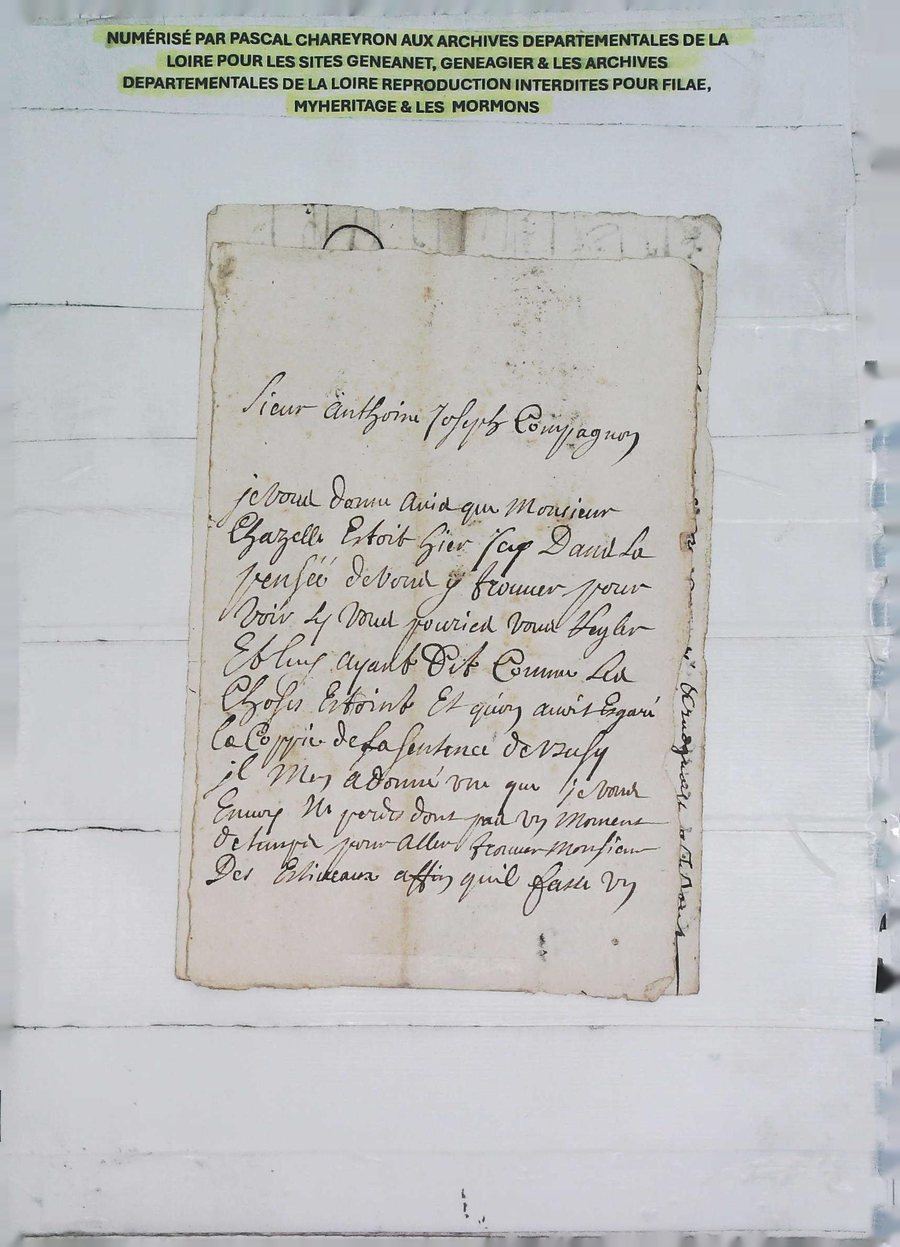 NUMÉRISÉ PAR PASCAL CHAREYRON AUX ARCHIVES DEPARTEMENTALES DE LA
LOIRE POUR LES SITES GENEANET, GENEAGIER & LES ARCHIVES
DEPARTEMENTALES DE LA LOIRE REPRODUCTION INTERDITES POUR FILAE,
MYHERITAGE & LES MORMONS
Sieur Anthoine Joseph Compagnon
je vous donne avis que Monsieur
Chazelle Estoit hier Icy Dans La
pensée de vous y trouver pour
voir sy vous pouries vous Regler
Et luy ayant Dit Comme Les
Choses Estoint Et qu'on avoit Esgaré
la Coppie de sa sentence de
il M'en a donné une que je vous
Envoy Ne perdes dont pas un Moment
de temps pour Aller trouver Monsieur
Des Estiveaux affin quil fasse un